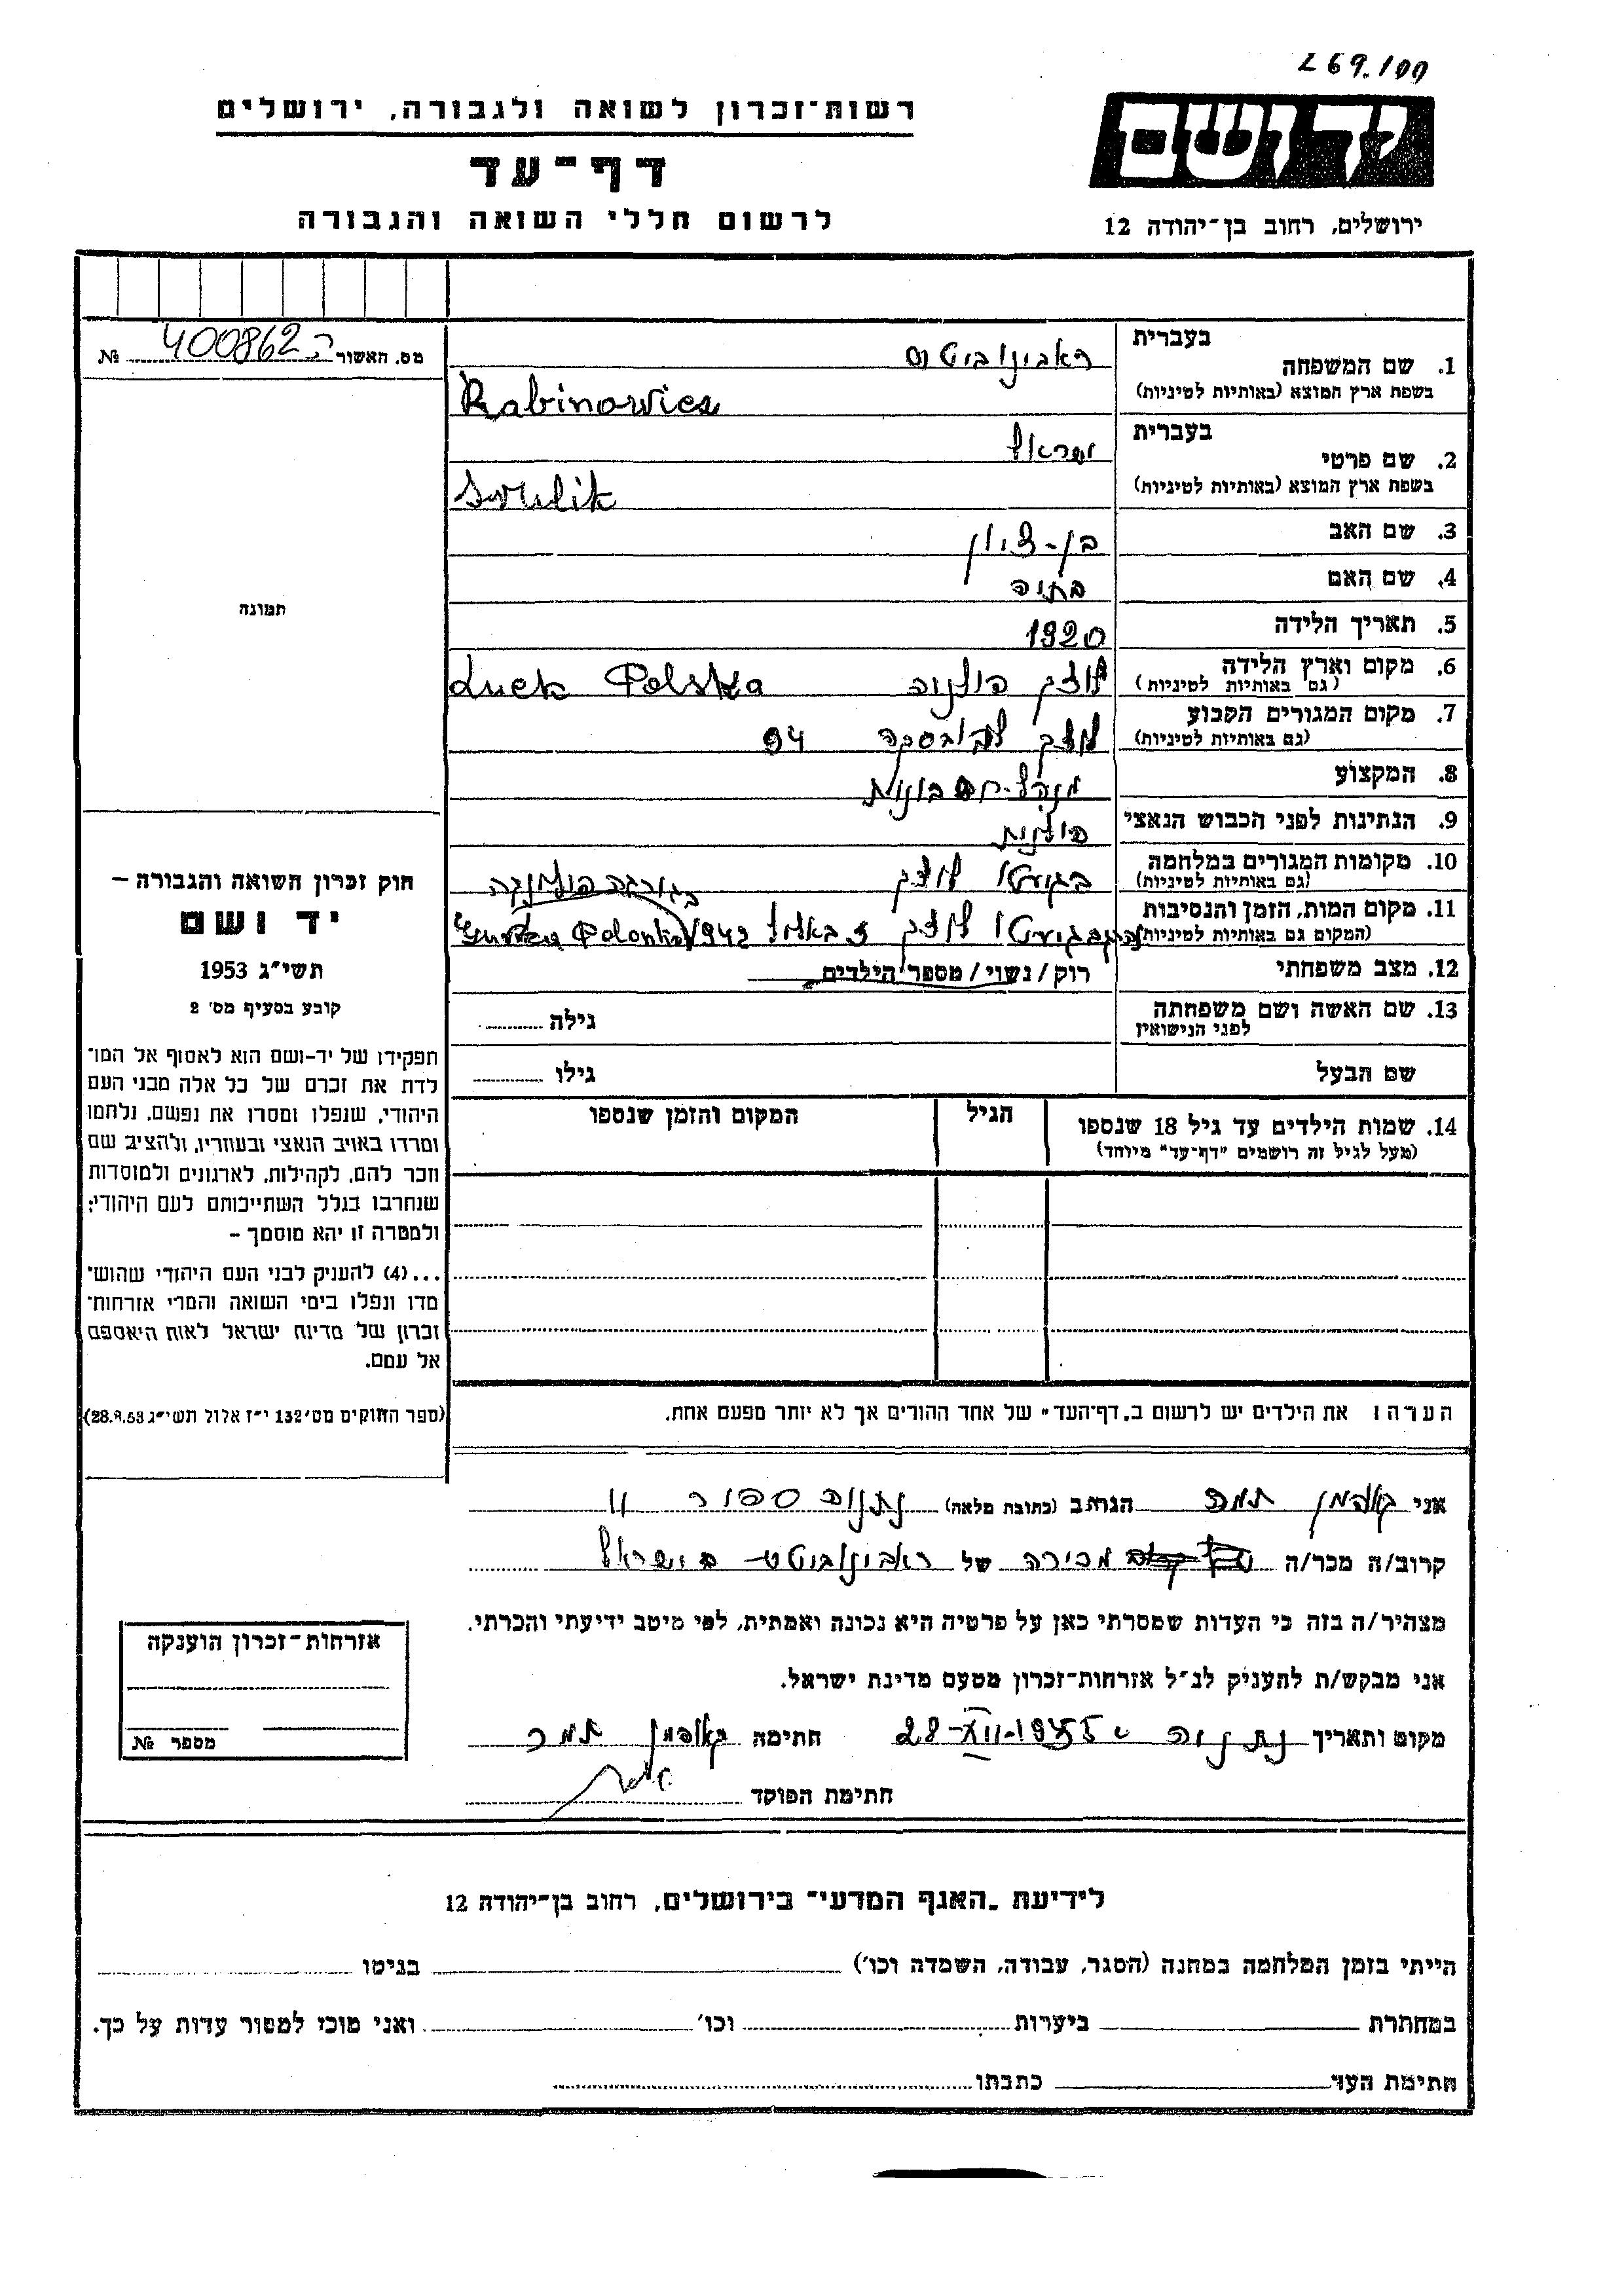 269.100
רשות־זכרון לשואה ולגבורה, ירושלים
דף־עד
לרשום חללי השואה והגבורה
יד ושם
ירושלים, רחוב בן־יהודה 12
מס. האשור ה 400862 №
בעברית
1. שם המשפחה ראבינוביטש
בשפת ארץ המוצא (באותיות לטיניות) Rabinowicz
בעברית
2. שם פרטי ישראל
בשפת ארץ המוצא (באותיות לטיניות) Srulik
3. שם האב בן-ציון
4. שם האם בתיה
5. תאריך הלידה 1920
6. מקום וארץ הלידה לוצק פולניה Łuck Polska
(גם באותיות לטיניות)
7. מקום המגורים הקבוע לוצק 94
(גם באותיות לטיניות)
8. המקצוע מנהל-חשבונות
9. הנתינות לפני הכבוש הנאצי פולנית
10. מקומות המגורים במלחמה בגיטו לוצק
(גם באותיות לטיניות)
11. מקום המות, הזמן והנסיבות בגיטו לוצק באלול 1942 Polonka
(המקום גם באותיות לטיניות)
12. מצב משפחתי רוק / נשוי / מספר הילדים
13. שם האשה ושם משפחתה גילה
לפני הנישואין
שם הבעל גילו
14. שמות הילדים עד גיל 18 שנספו הגיל המקום והזמן שנספו
(מעל לגיל זה רושמים "דף־עד" מיוחד)
תמונה
חוק זכרון השואה והגבורה –
יד ושם
תשי"ג 1953
קובע בסעיף מס' 2
תפקידו של יד-ושם הוא לאסוף אל המו־
לדת את זכרם של כל אלה מבני העם
היהודי, שנפלו ומסרו את נפשם, נלחמו
ומרדו באויב הנאצי ובעוזריו, ולהציב שם
וזכר להם, לקהילות, לארגונים ולמוסדות
שנחרבו בגלל השתייכותם לעם היהודי;
ולמטרה זו יהא מוסמך –
...(4) להעניק לבני העם היהודי שהוש־
מדו ונפלו בימי השואה והמרי אזרחות־
זכרון של מדינת ישראל לאות היאספם
אל עמם.
(ספר החוקים מס' 132 י"ז אלול תשי"ג 28.8.53)
הערה: את הילדים יש לרשום ב"דף־העד" של אחד ההורים אך לא יותר מפעם אחת.
אני קאופמן תמר הגר/ה ב (כתובת מלאה) נתניה ספיר 11
קרוב/ה מכר/ה מכירה של ראבינוביטש ישראל
מצהיר/ה בזה כי העדות שמסרתי כאן על פרטיה היא נכונה ואמתית, לפי מיטב ידיעתי והכרתי.
אני מבקש/ת להעניק לנ"ל אזרחות־זכרון מטעם מדינת ישראל.
מקום ותאריך נתניה 28-XII-1955 חתימה קאופמן תמר
חתימת הפוקד
אזרחות־זכרון הוענקה
מספר №
לידיעת "האגף המדעי" בירושלים, רחוב בן־יהודה 12
הייתי בזמן המלחמה במחנה (הסגר, עבודה, השמדה וכו') בגיטו
במחתרת ביערות וכו' ואני מוכן למסור עדות על כך.
חתימת העד כתבתו